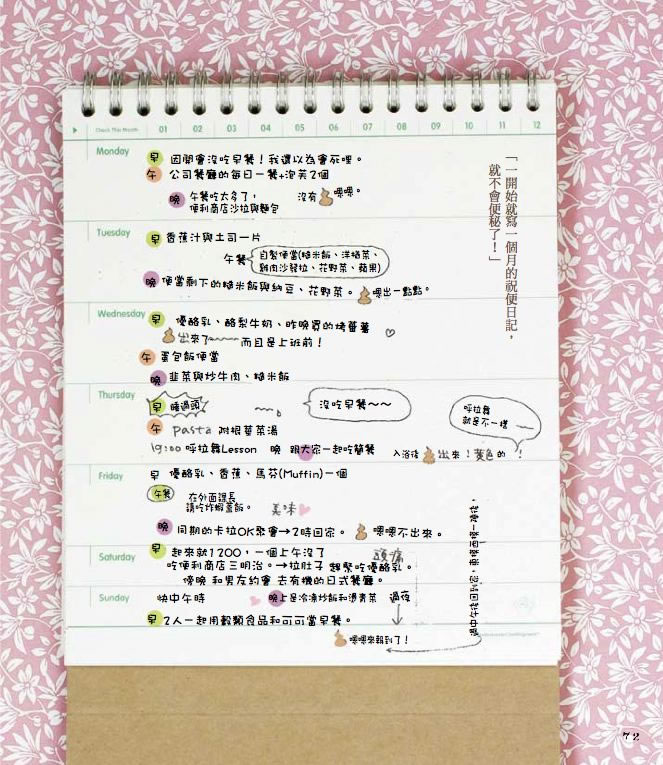 Check This Month 01 02 03 04 05 06 07 08 09 10 11 12
「一開始就寫一個月的祝便日記，
就不會便秘了！」
Monday
早 因開會沒吃早餐！我還以為會死哩。
午 公司餐廳的每日一餐+泡芙2個
晚 午餐吃太多了，
便利商店沙拉與麵包
沒有 嗯嗯。
Tuesday
早 香蕉汁與土司一片
午餐 自製便當(糙米飯、洋栖菜、
雞肉沙發拉、花野菜、蘋果)
晚 便當剩下的糙米飯與納豆、花野菜。 嗯出一點點。
Wednesday
早 優酪乳、酪梨牛奶、昨晚買的烤蕃薯
出來了～～～ 而且是上班前！
午 蛋包飯便當
晚 韭菜與炒牛肉、糙米飯
Thursday
早 睡過頭
沒吃早餐～～
午 pasta 附根莖菜湯
呼拉舞
就是不一樣
19:00 呼拉舞Lesson 晚 跟大家一起吃簡餐
入浴後 出來！黃色的！
Friday
早 優酪乳、香蕉、馬芬(Muffin)一個
午餐 在外面課長
請吃炸蝦蓋飯。 美味
晚 同期的卡拉OK聚會→2時回家。 嗯嗯不出來。
Saturday
早 起來就1200，一個上午沒了 頭痛
吃便利商店三明治。→拉肚子 趕緊吃優酪乳。
傍晚 和男友約會 去有機的日式餐廳。
Sunday
快中午時
晚上是冷凍炒飯和燙青菜 過夜
早 2人一起用穀類食品和可可當早餐。
嗯嗯來報到了！
過中午後回到家，東摸西摸一陣後，
72